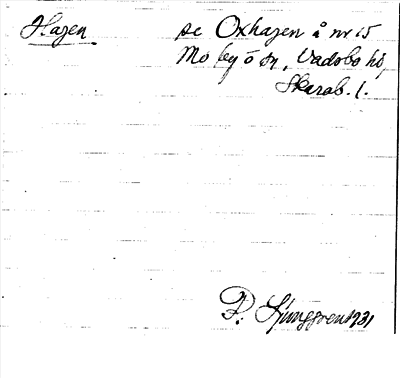 Hagen se Oxhagen å nr 15
Mo by o sn, Vadsbo hd,
Skarab. l.
P. Ljunggren 1931